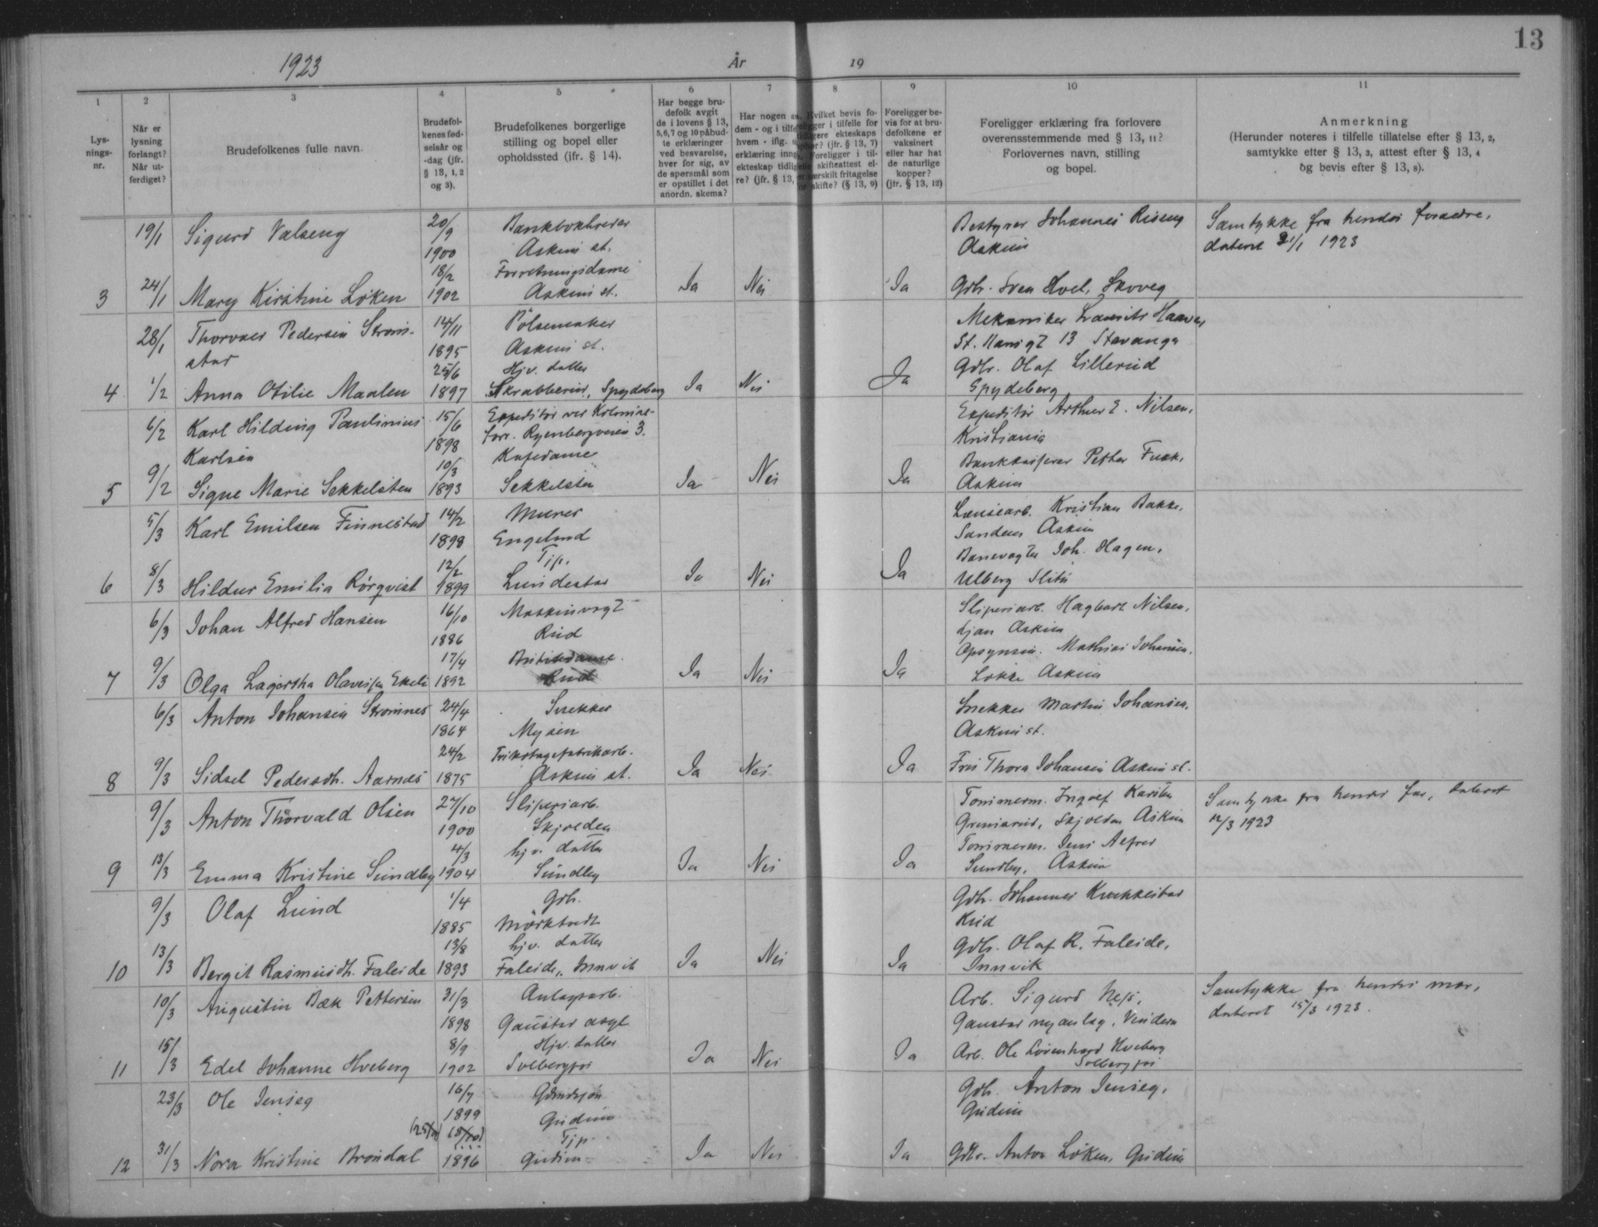 13
1923
År 19
1 2 3 4 5 6 7 8 9 10 11
Lys-
nings-
nr.
Når er
lysning
forlangt?
Når ut-
ferdiget?
Brudefolkenes fulle navn.
Brudefol-
kenes fød-
selsår og
-dag (jfr.
§ 13, 1, 2
og 3).
Brudefolkenes borgerlige
stilling og bopel eller
opholdssted (jfr. § 14).
Har begge bru-
defolk avgit
de i lovens § 13,
5,6,7 og 10 påbud-
te erklæringer
ved besvarelse,
hver for sig, av
de spørsmål som
er opstillet i det
anordn. skema?
Har nogen
dem - og i tilf
hvem - iflg.
erklæring inng
ekteskap tidlig
re? (jfr. § 13,
Hvilket bevis fo-
religger i tilfelle for
tidligere ekteskaps
ophør? (jfr. § 13, 7)
Foreligger i til-
felle skifteattest el-
særskilt fritagelse
skifte? (§ 13, 9)
Foreligger be-
vis for at bru-
defolkene er
vaksinert
eller har hat
de naturlige
kopper?
(jfr. § 13, 12)
Foreligger erklæring fra forlovere
overensstemmende med § 13, 11?
Forlovernes navn, stilling
og bopel.
Anmerkning
(Herunder noteres i tilfelle tillatelse efter § 13, 2,
samtykke efter § 13, 3, attest efter § 13, 4
og bevis efter § 13, 8).
19/1 Sigurd Valseng 20/9 Bankbokholder Bestyrer Johannes Riseng Samtykke fra hendes foraldre,
1900 Askim st. Askim dateret 21/1 1923
18/2 Forretningsdame
3 24/1 Mary Kirstine Løken 1902 Askim st. Ja Nei Ja Gdbr. Sven Hoel, Skoveg
28/1 Thorvald Pedersen Strøm- 14/11 Pølsemaker Mekaniker Lauritz Haaver
stad 1895 Askim st. St. Hansgt 13 Stavanger
25/6 Hjv. datter Gdbr. Olaf Lillerud
4 1/2 Anna Otilie Maalen 1897 Skrabberud, Spydeberg Ja Nei Ja Spydeberg
6/2 Karl Hilding Paulinius 15/6 Expeditør ved Kolonial- Expeditør Arthur E. Nilsen,
Karlsen 1898 forr. Ryenbergveien 3. Kristiania
10/3 Kafedame Bankkasserer Petter Fusk,
5 9/2 Signe Marie Sekkelsten 1893 Sekkelsten Ja Nei Ja Askim
5/3 Karl Emilsen Finnestad 14/2 Murer Lænsearb. Kristian Bakke,
1898 Engelund Sanden Askim
12/2 Tjp. Banevogter Joh. Hagen,
6 8/3 Hildur Emilia Rørqvist 1899 Lundestad Ja Nei Ja Ulberg Slitu
6/3 Johan Alfred Hansen 16/10 Maskinvogt Sliperiarb. Hagbart Nilsen,
1886 Rud Askim
17/4 Butikdame. Opsynsm. Mathias Johansen,
7 9/3 Olga Lagertha Olavesen Ekeli 1892 Rud Ja Nei Ja Løkke Askim
6/3 Anton Johansen Strømnes 24/4 Snekker Snekker Martin Johansen,
1864 Mysen Askim st.
24/2 Trikotagefabrikarb.
8 9/3 Sidsel Pedersdt. Aarnes 1875 Askim st. Ja Nei Ja Fru Thora Johansen Askim st.
9/3 Anton Thorvald Olsen 27/10 Sliperiarb. Tømmerm. Ingolf Karsten Samtykke fra hendes far, dateret
1900 Skjolden Grimsrud, Skjolden Askim 12/3 1923
4/3 hjv. datter Tømmerm. Jens Alfred
9 13/3 Emma Kristine Sundby 1904 Sundby Ja Nei Ja Sundby, Askim
9/3 Olaf Lund 1/4 Gdb. Gdb. Johannes Krekkestad
1885 Mørktvedt Rud
13/8 hjv. datter Gdb. Olaf R. Faleide,
10 13/3 Bergit Rasmusdt. Faleide 1893 Faleide, Innvik Ja Nei Ja Innvik
10/3 Augustin Bæk Pettersen 31/3 Anlægsarb. Arb. Sigurd Næss, Samtykke fra hendes mor,
1898 Gaustad asyl Gaustad nyanlæg, Vinderen dateret 15/3 1923.
8/9 Hjv. datter
11 15/3 Edel Johanne Hveberg 1902 Solbergfos Ja Nei Ja Arb. Ole Lovenhard Hveberg
Solbergfos
23/3 Ole Jenseg 16/7 Gaardsjon Gdb. Anton Jenseg,
1899 Gudim Gudim
Tjp.
12 31/3 Nora Kristine Brøndal 1896 Gudim Ja Nei Ja Gdbr. Anton Løken, Gudim